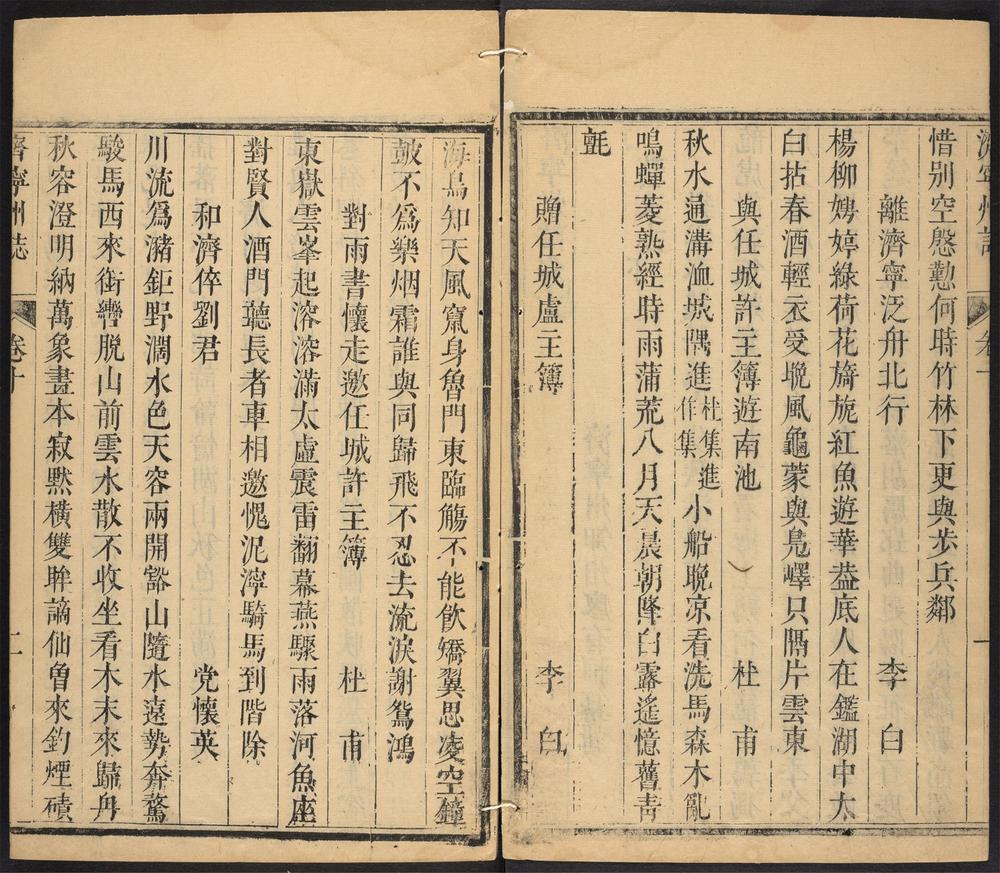 濟寧州誌 卷十
惜別空慇懃何時竹林下更與步兵鄰
離濟寧泛舟北行 李白
楊柳娉婷綠荷花旖旎紅魚遊華葢底人在鑑湖中太
白拈春酒輕衣受晚風龜蒙與鳧嶧只隔片雲東
與任城許主簿遊南池 杜甫
秋水通溝洫城隅進杜集進作集小船晚凉看洗馬森木亂
鳴蟬菱熟經時雨蒲荒八月天晨朝降白露遙憶舊靑
氈
贈任城盧主簿 李白
海鳥知天風竄身魯門東臨觴不能飲矯翼思凌空鐘
皷不爲樂烟霜誰與同歸飛不忍去流淚謝鴛鴻
對雨書懷走邀任城許主簿 杜甫
東嶽雲峯起溶溶滿太虛震雷翻幕燕驟雨落河魚座
對賢人酒門聽長者車相邀愧泥濘騎馬到階除
和濟倅劉君 党懷英
川流爲瀦鉅野濶水色天容兩開豁山隨水遠勢奔騖
駿馬西來銜轡脫山前雲水散不收坐看木末來歸舟
秋容澄明納萬象畫本寂默橫雙眸謫仙魯來釣煙磧
濟寧州誌 卷十 二